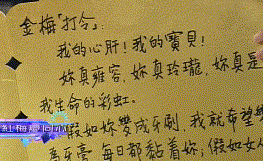 金梅「打令」：
我的心肝！我的寶貝！
妳真雍容，妳真玲瓏，妳真是
我生命的彩虹。
假如妳變成牙刷，我就希望變
牙膏，每日都黏着妳；假如女人